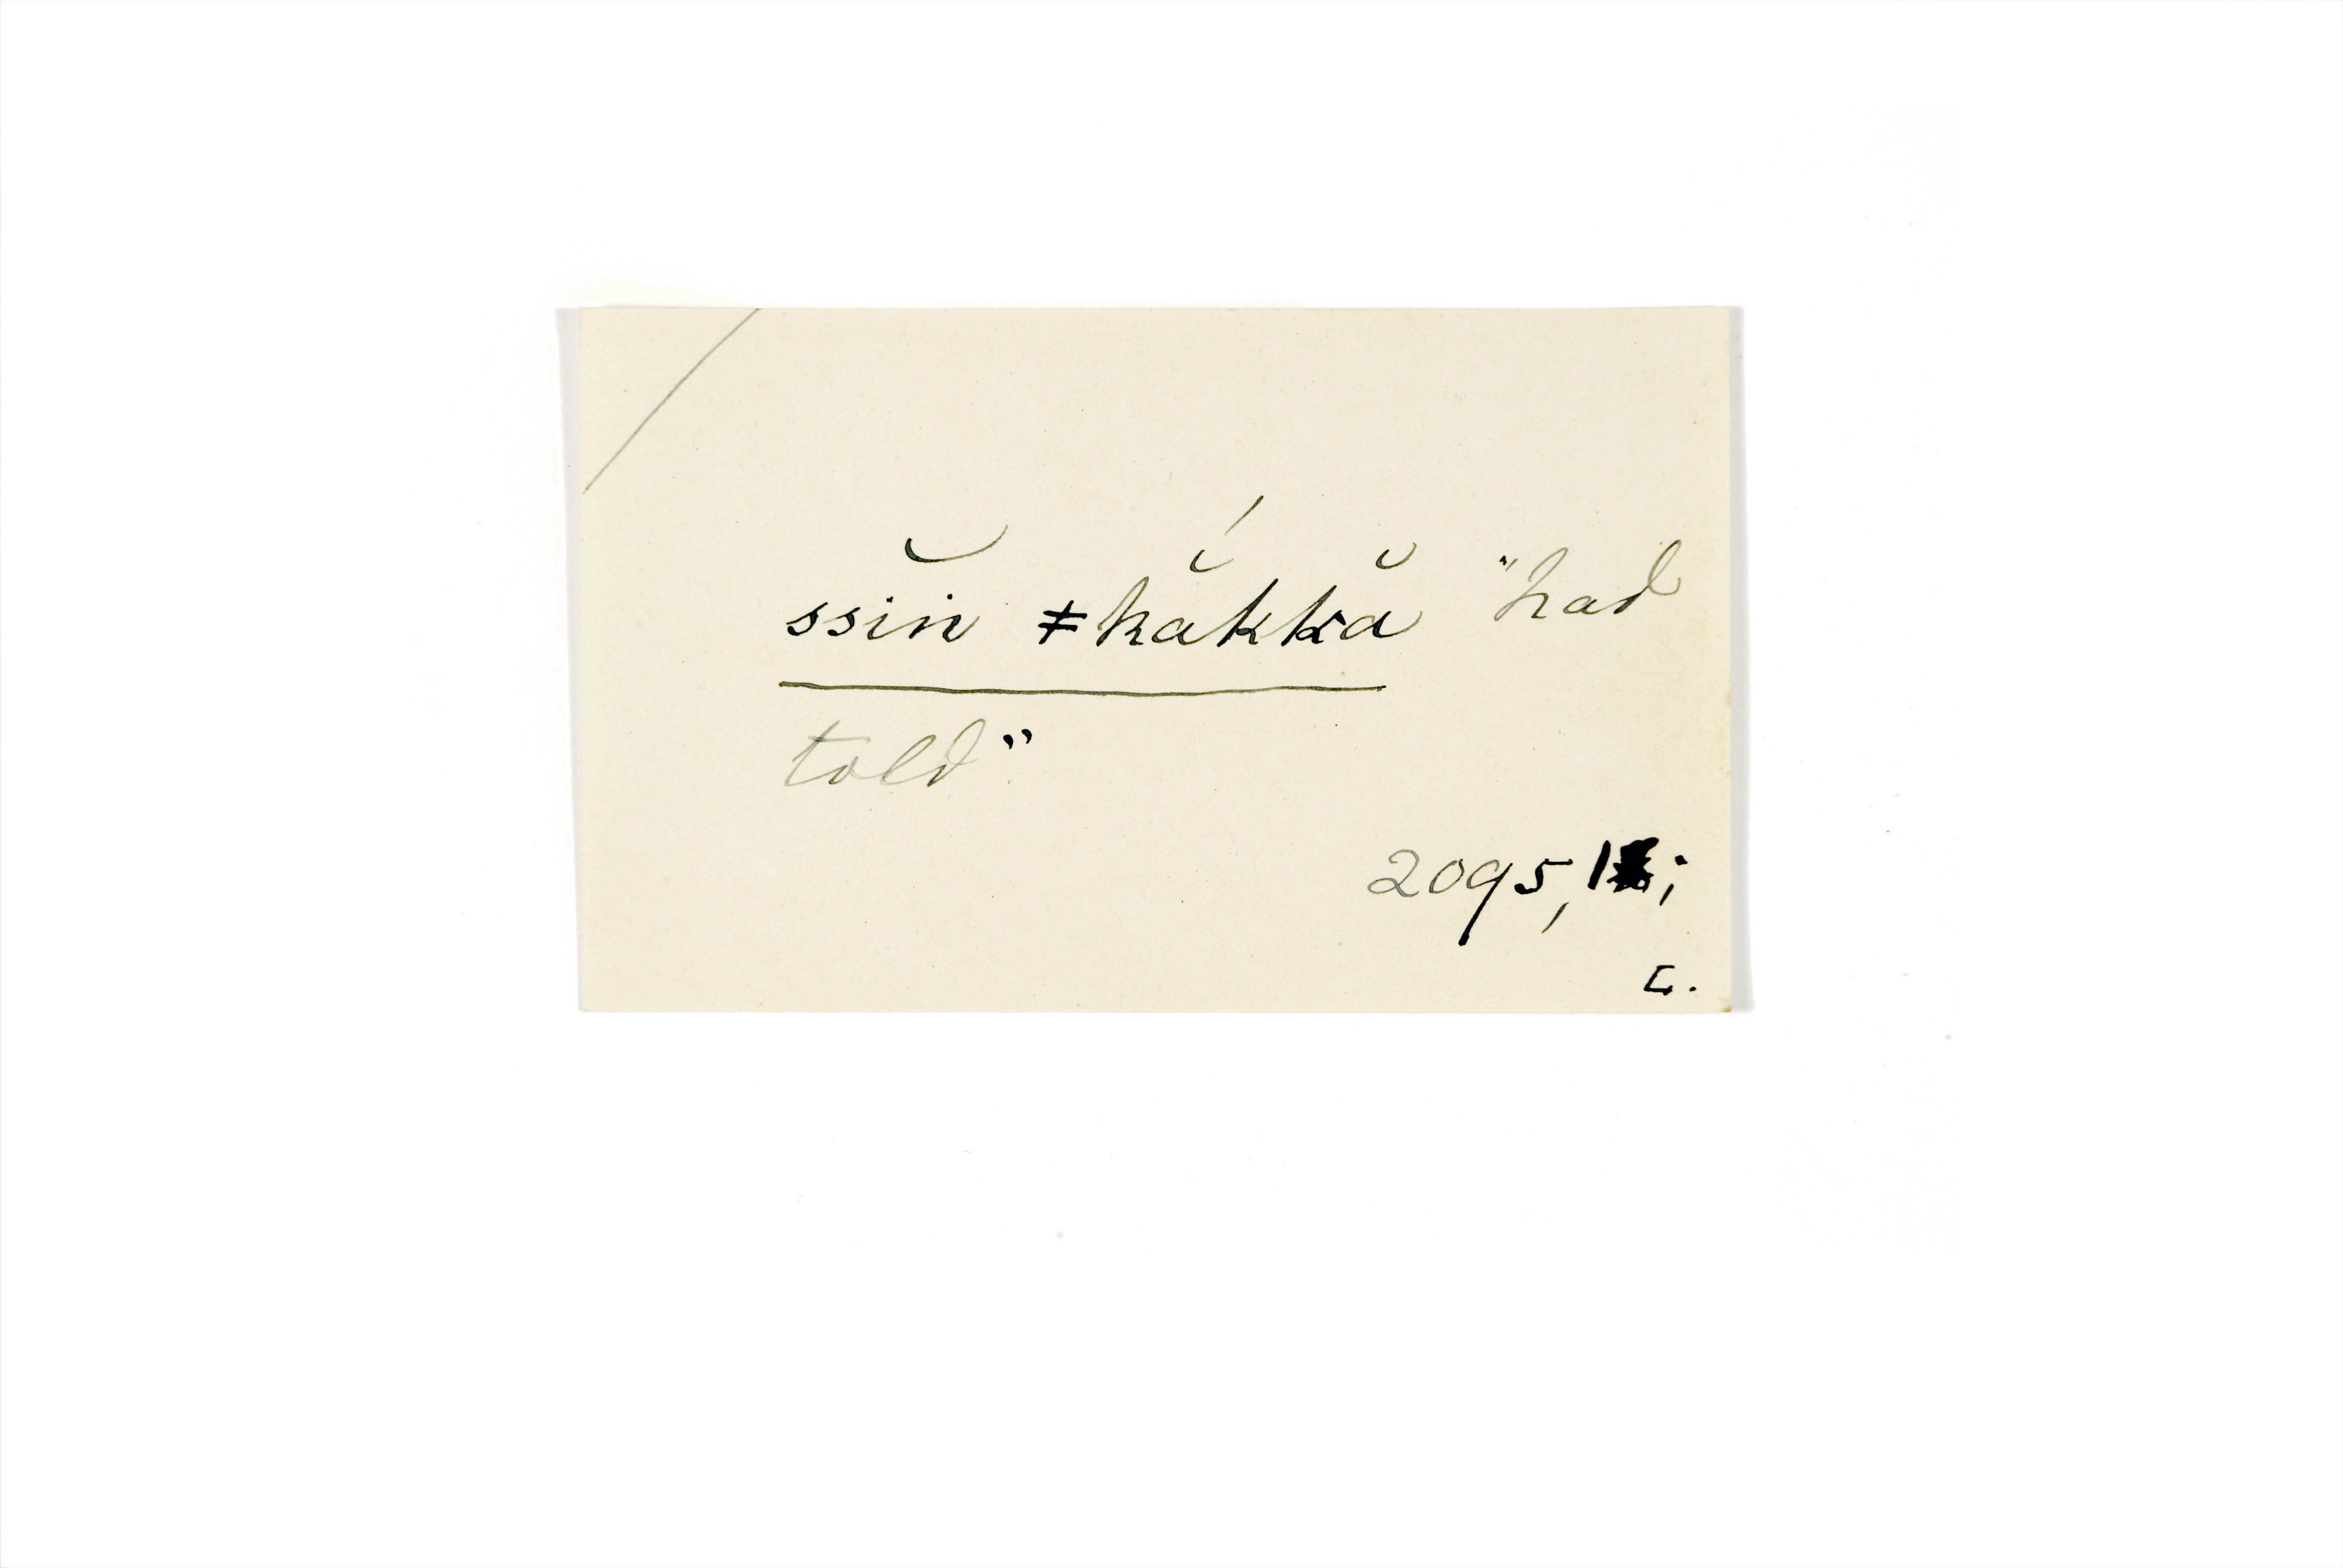 ssĭn ǂkắkkă "had
told"
2095, 1;
L.